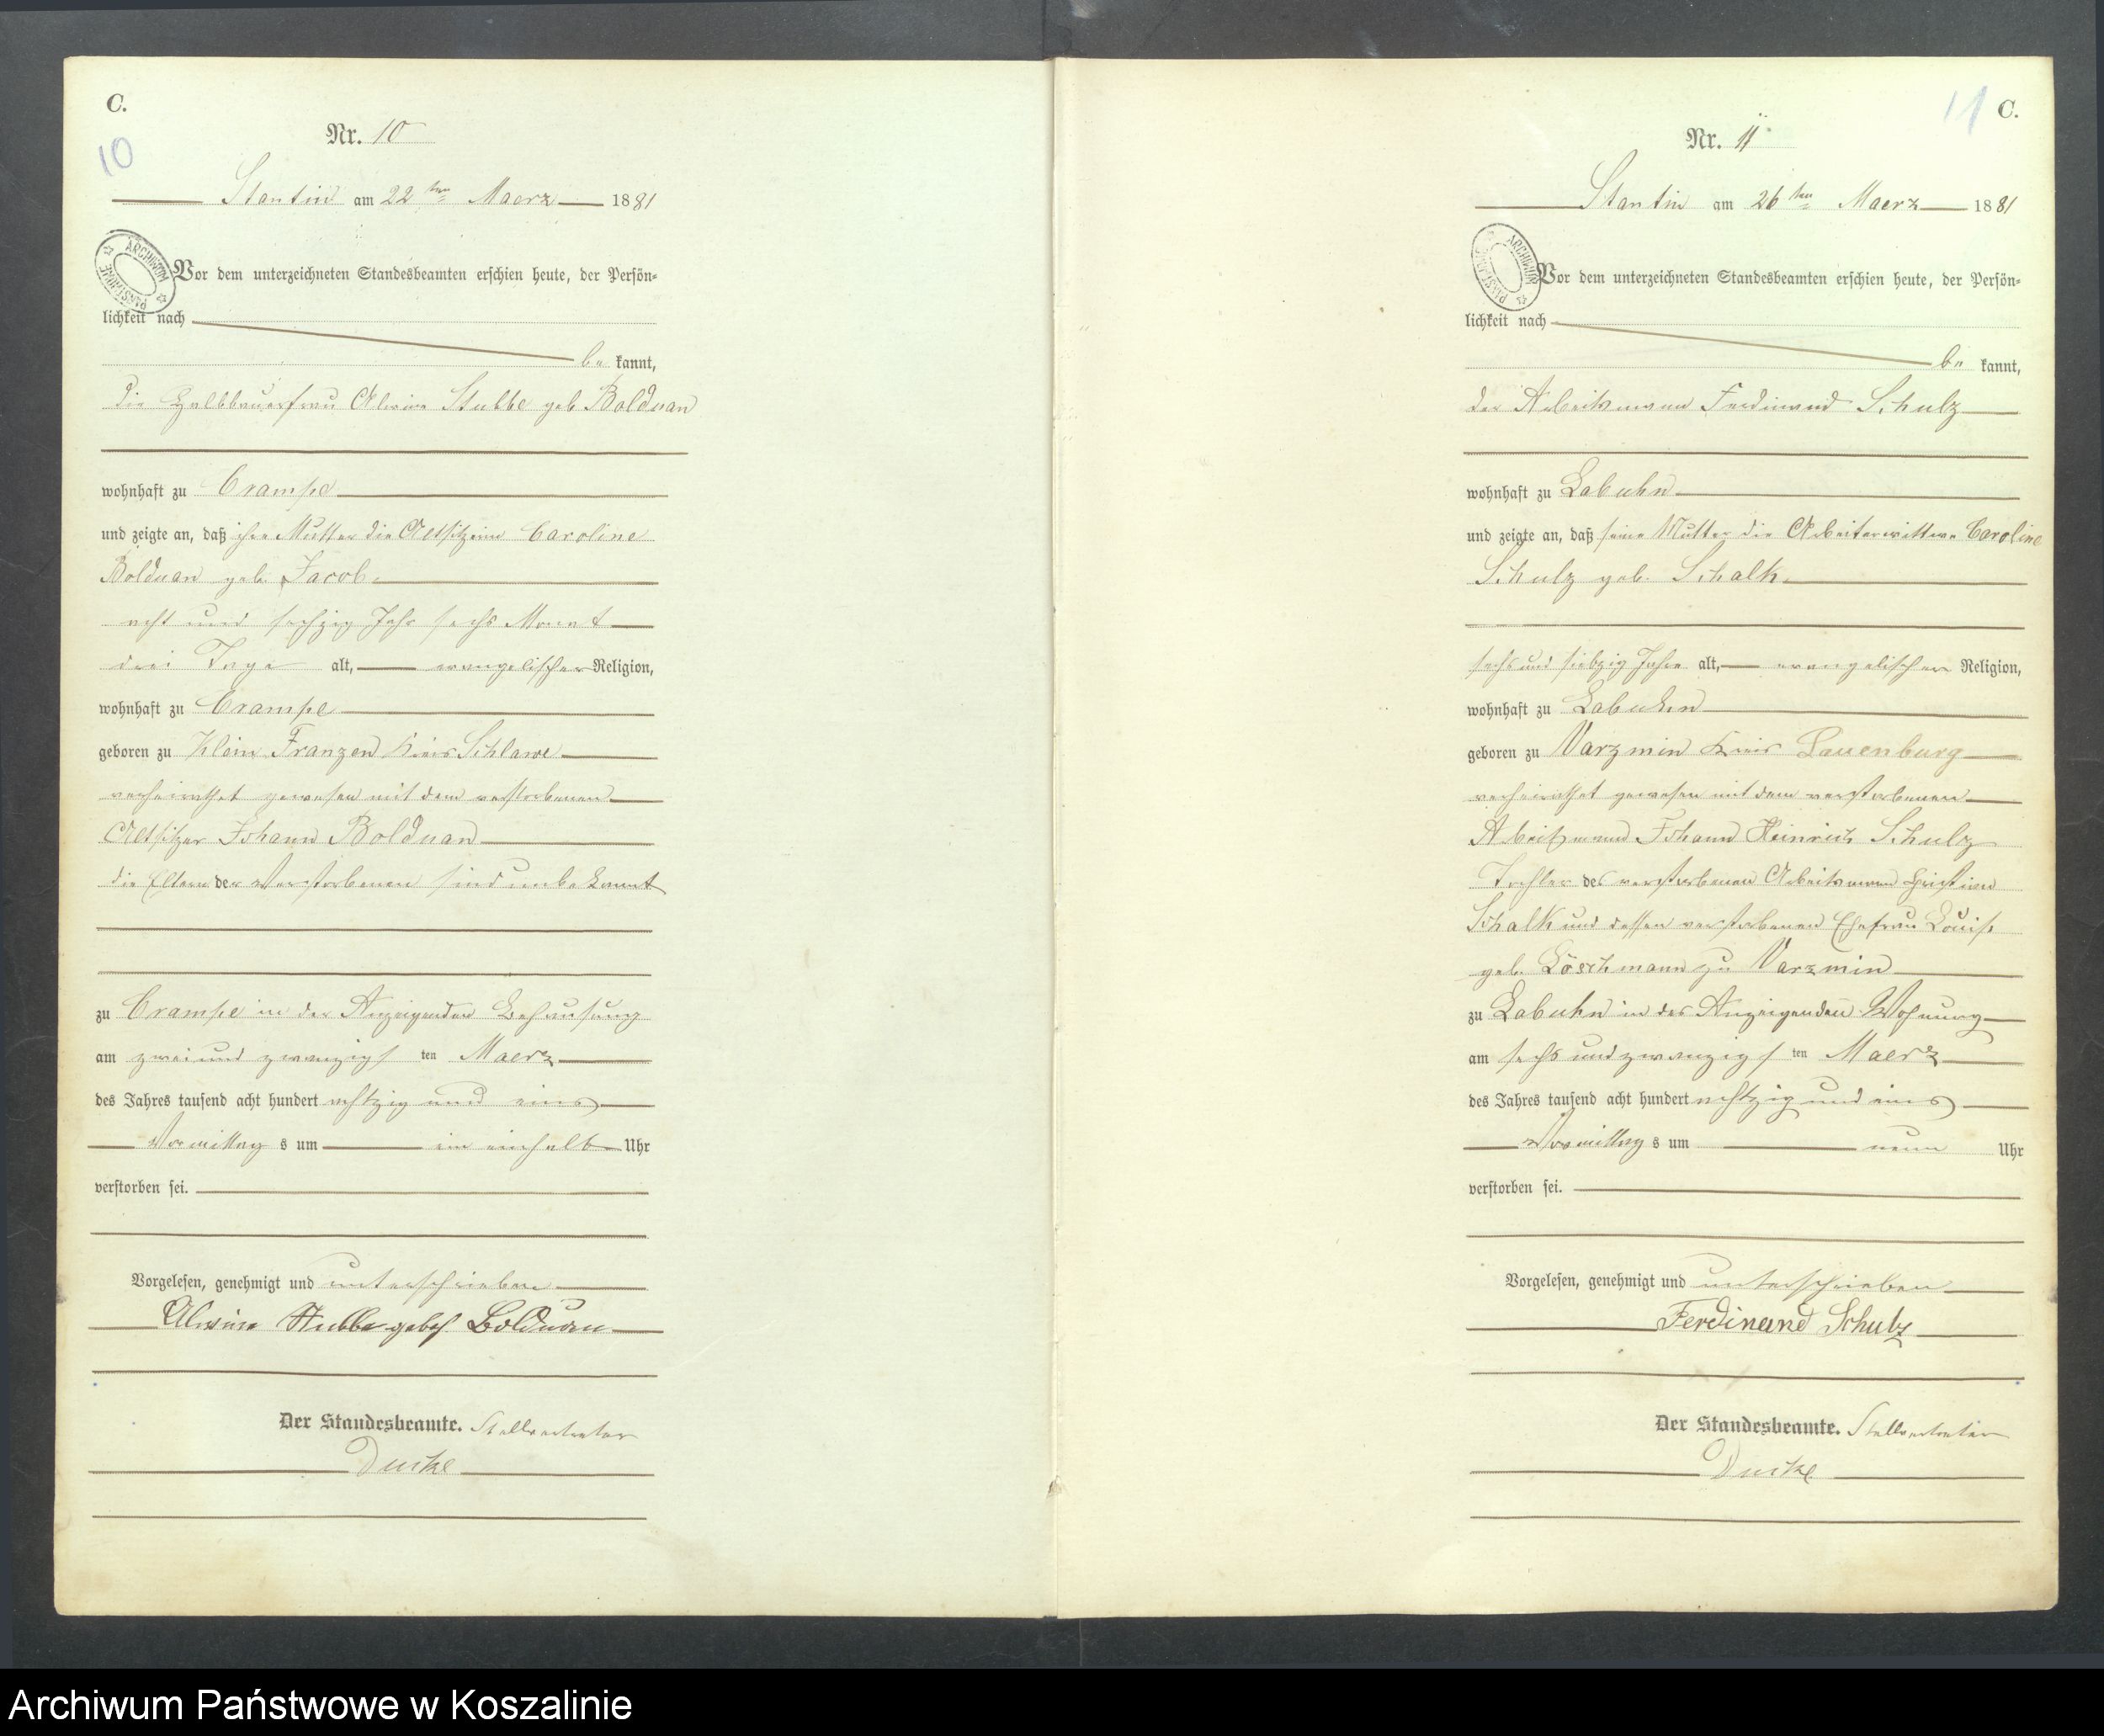 C.
10
Nr. 10
Stantin am 22ten Maerz 1881
Vor dem unterzeichneten Standesbeamten erschien heute, der Persön-
lichkeit nach
be kannt,
die Halbbauerfrau Alwine Stubbe geb Bolduan
wohnhaft zu Crampe
und zeigte an, daß ihre Mutter die Altsitzerin Caroline
Bolduan geb. Jacob,
acht und sechzig Jahr sechs Monat
drei Tage alt, evangelischer Religion,
wohnhaft zu Crampe
geboren zu Klein Franzen Kreis Schlawe
verheirathet gewesen mit dem verstorbenen
Altsitzer Johann Bolduan
die Eltern der Verstorbenen sind unbekannt
zu Crampe in der Anzeigenden Behausung
am zwei und zwanzigs ten Maerz
des Jahres tausend acht hundert achtzig und eins
Vormittag s um ein einhalb Uhr
verstorben sei.
Vorgelesen, genehmigt und unterschrieben
Alwine Stubbe geb Bolduan
Der Standesbeamte. Stellvertreter
11 C.
Nr. 11
Stantin am 26ten Maerz 1881
Vor dem unterzeichneten Standesbeamten erschien heute, der Persön-
lichkeit nach
be kannt,
der Arbeitsmann Ferdinand Schulz
wohnhaft zu Labuhn
und zeigte an, daß seine Mutter die Arbeiterwittwe Caroline
Schulz geb. Schalk,
sechs und siebzig Jahre alt, evangelischer Religion,
wohnhaft zu Labuhn
geboren zu Varzmin Kreis Lauenburg
verheirathet gewesen mit dem verstorbenen
Arbeitsmann Johann Heinrich Schulz
Tochter des verstorbenen Arbeitsmann Christian
Schalk und dessen verstorbenen Ehefrau Louise
geb. Löschmann zu Varzmin
zu Labuhn in des Anzeigenden Wohnung
am sechs und zwanzigs ten Maerz
des Jahres tausend acht hundert achtzig und eins
Vormittag s um neun Uhr
verstorben sei.
Vorgelesen, genehmigt und unterschrieben
Ferdinand Schulz
Der Standesbeamte. Stellvertreter
Archiwum Państwowe w Koszalinie